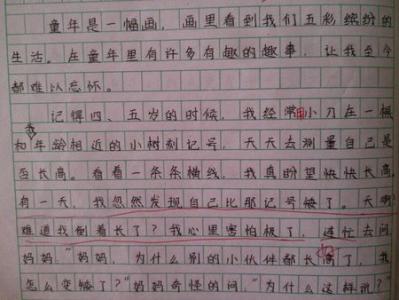 童年是一幅画，画里看到我们五彩缤纷的
生活。在童年里有许多有趣的趣事，让我至今
都难以忘怀。
记得四、五岁的时候，我经常用小刀在一棵
和我年龄相近的小树刻记号，天天去测量自己是
否长高。看着一条条横线，我真盼望快快长高，
有一天，我忽然发现自己比那记号矮了。天啊！
难道我倒着长了？我心里害怕极了，连忙去问
妈妈，“妈妈，为什么别的小伙伴都长高了，我
怎么变矮了？”妈妈奇怪的问，“为什么这样说？”